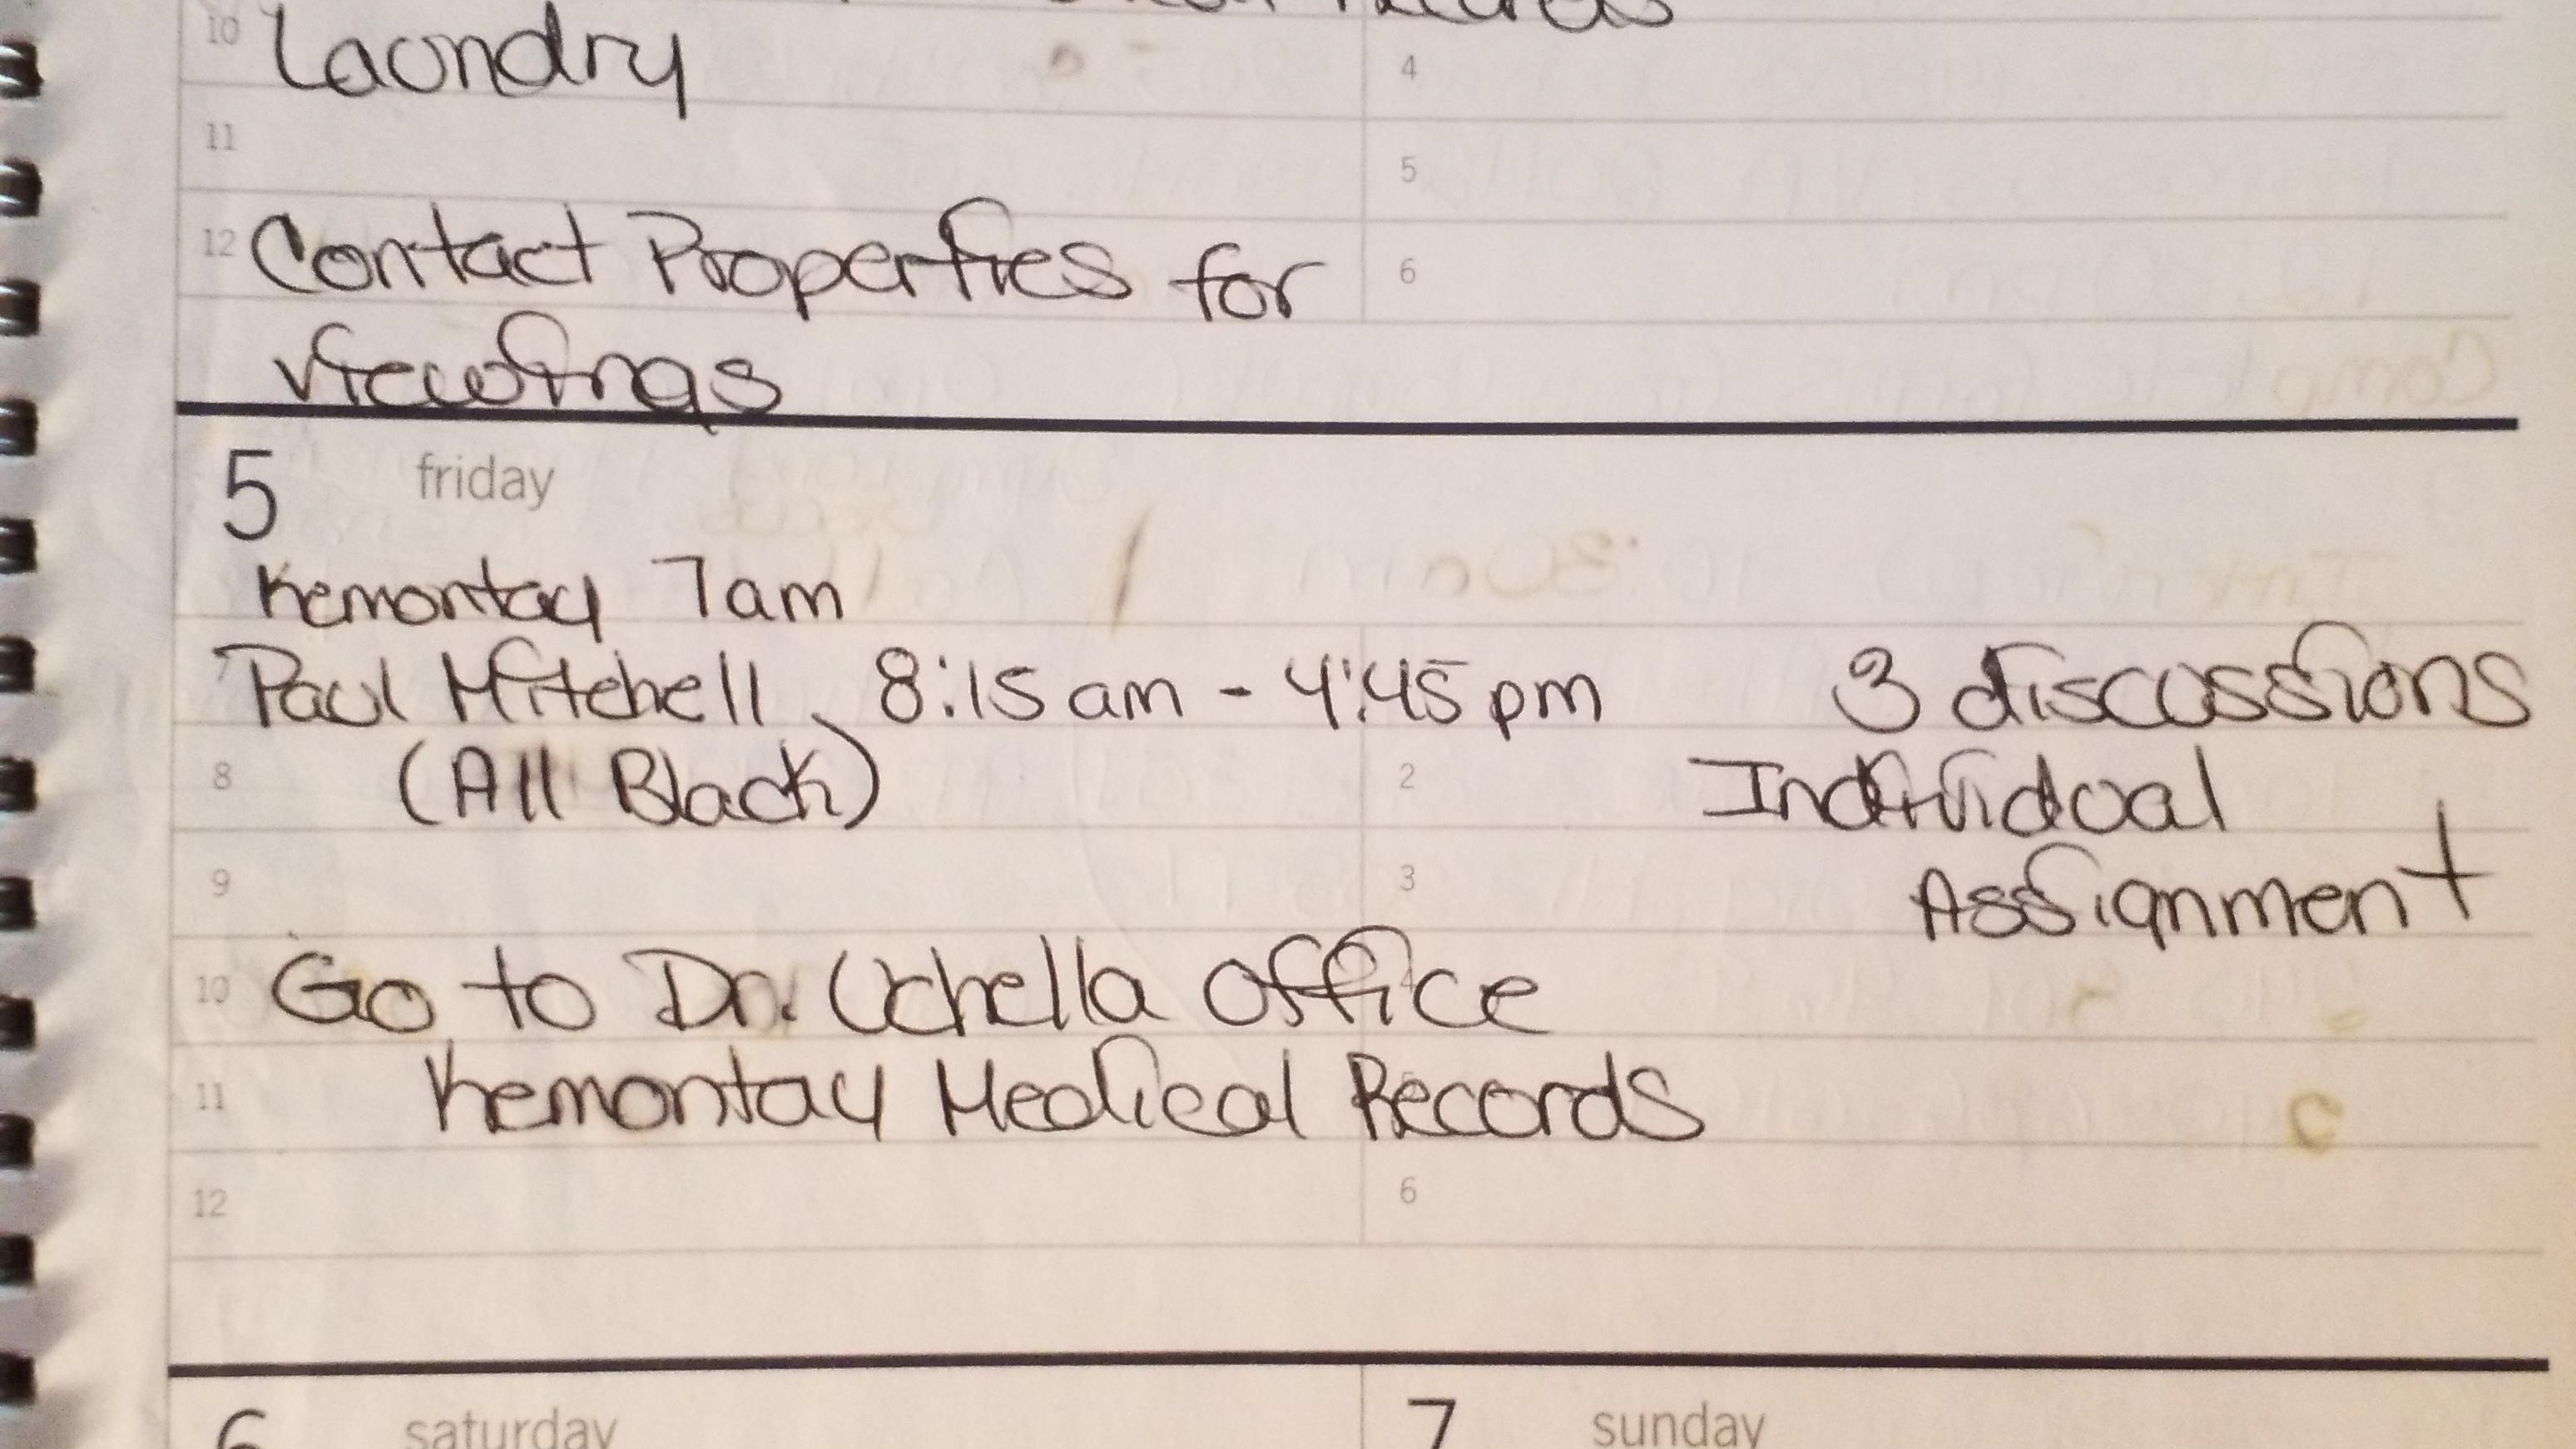 Records
10 Laundry 4
11 5
12 Contact Properties for 6
viewings
5 friday
Kemontay 7am
Paul Mitchell 8:15 am - 4:45 pm 3 discussions
8 (All Black) 2 Individual
9 3 Assignment
10 Go to Dr. Uchella office 4
11 Kemontay Medical Records
12 6
6 saturday 7 sunday